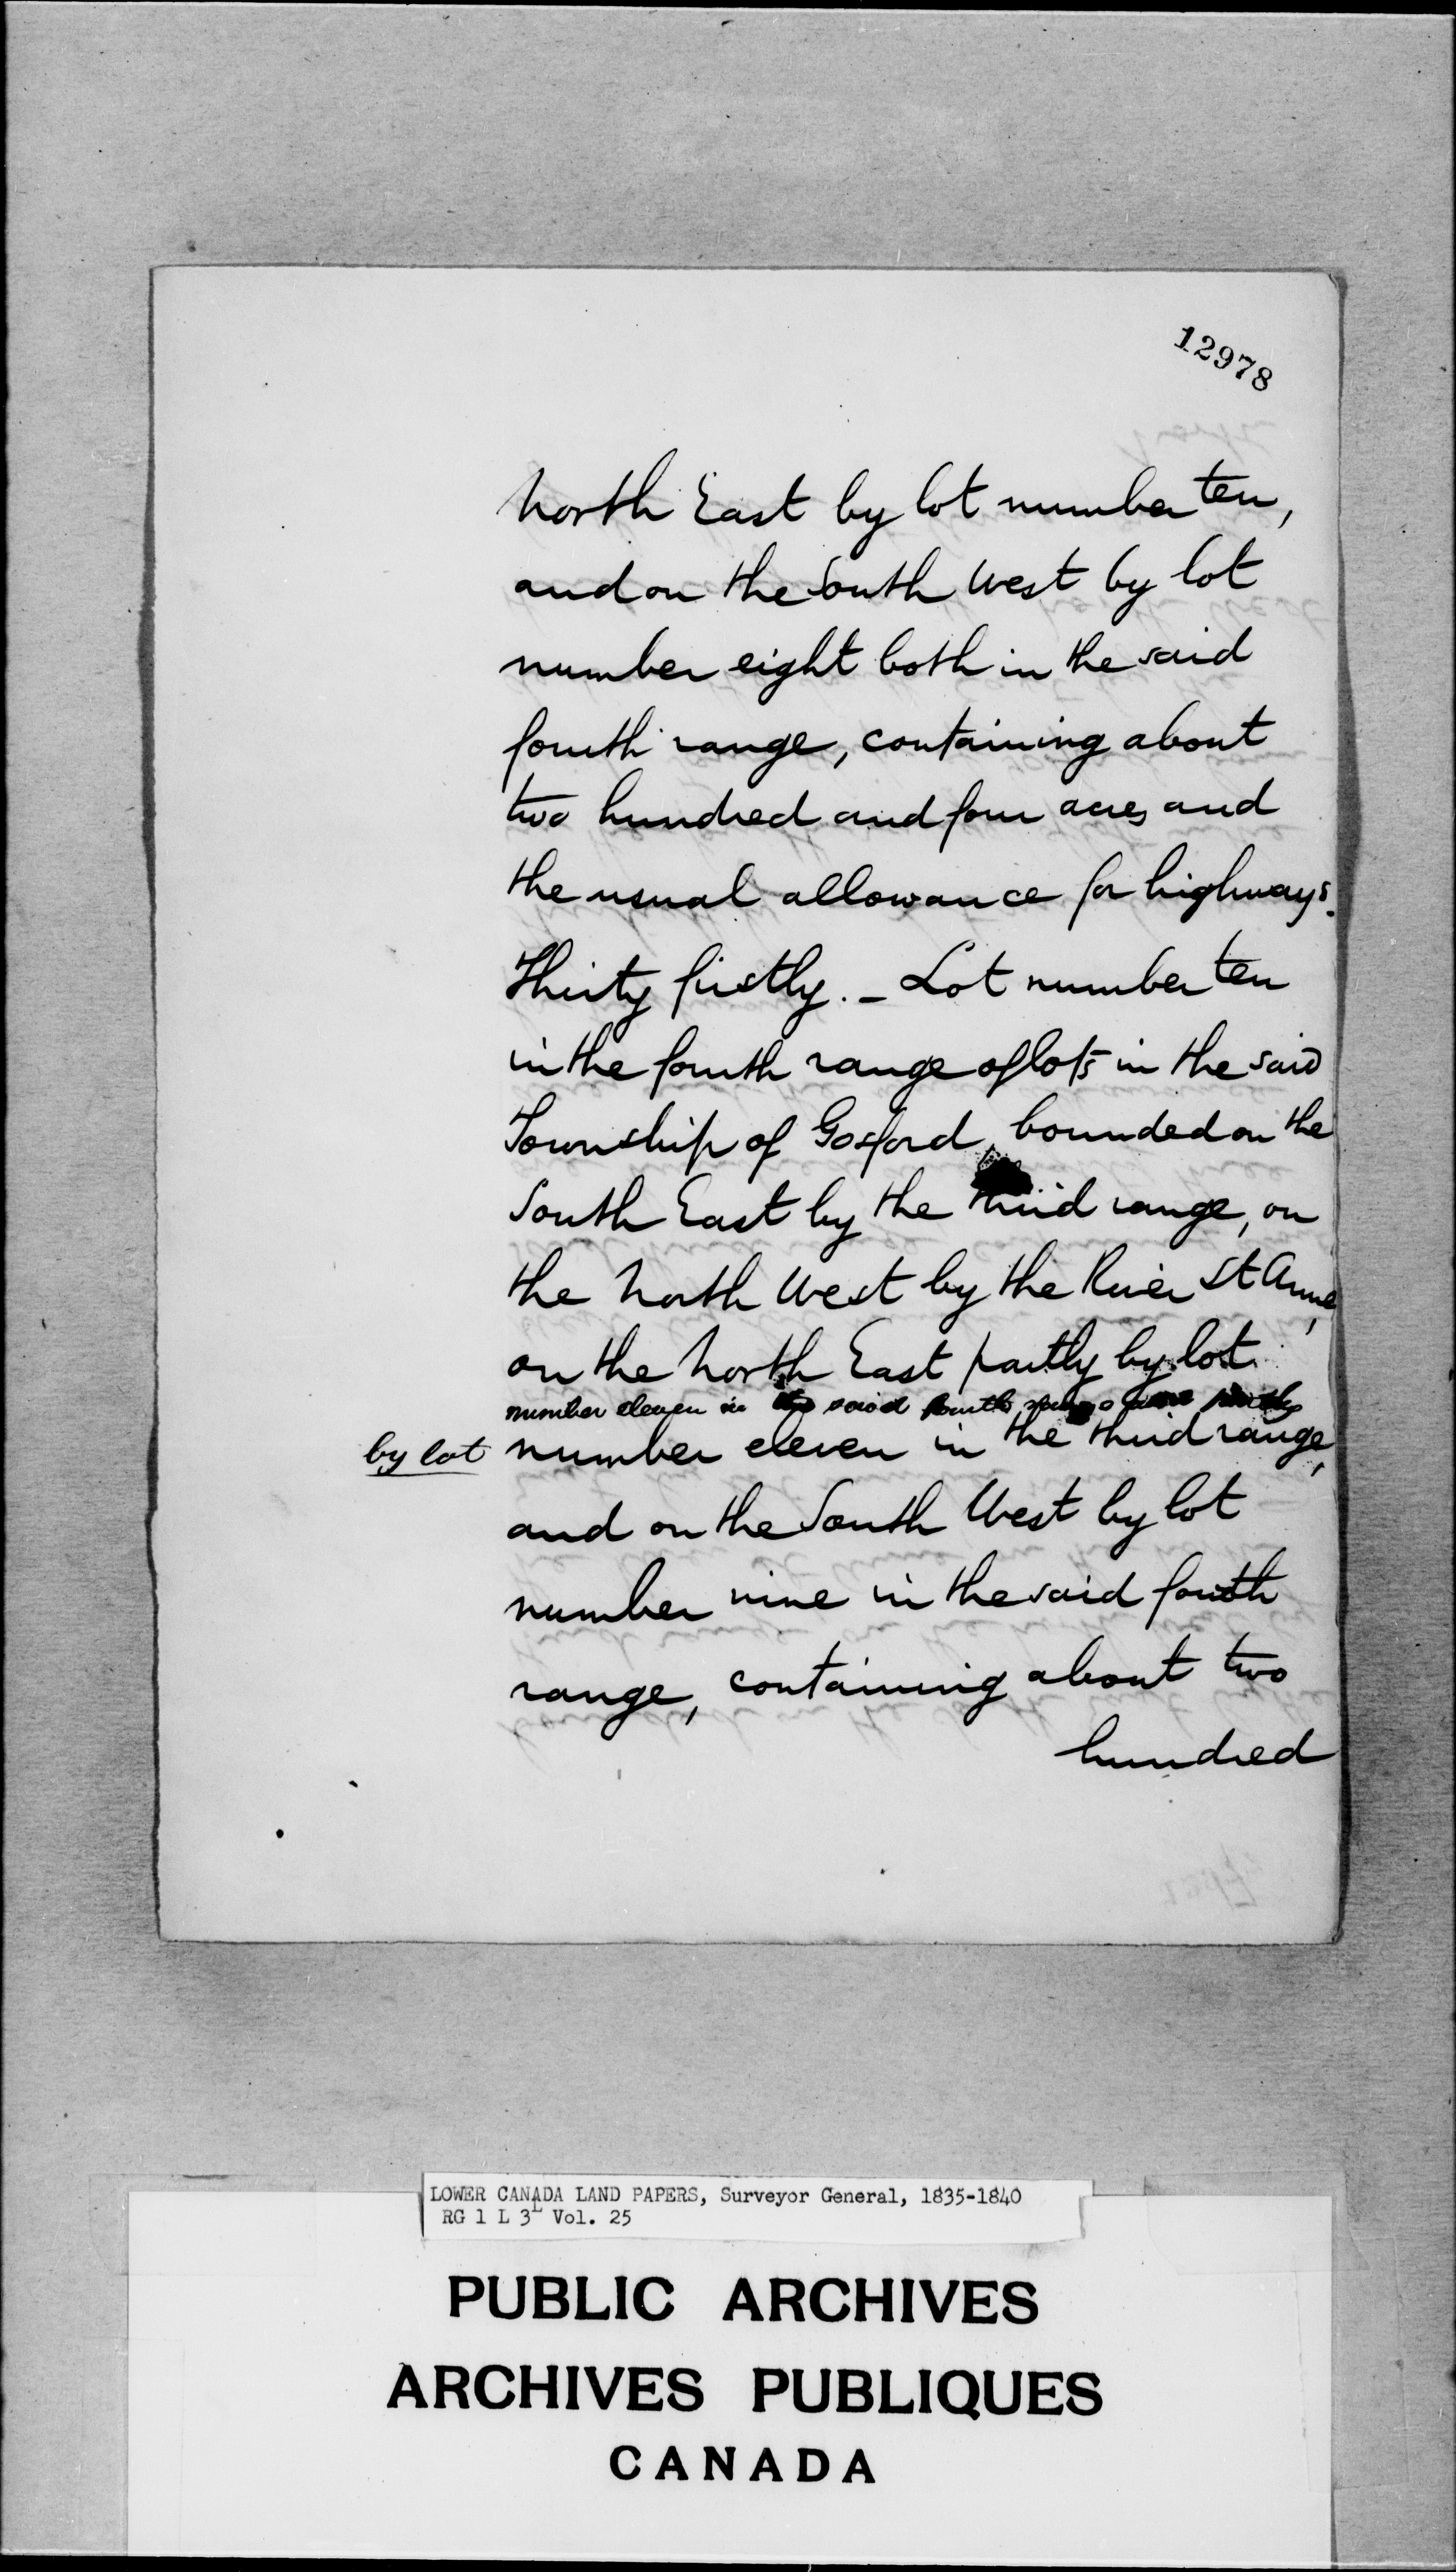 12978
North East by lot number ten,
and on the South West by lot
number eight both in the said
fourth range, containing about
two hundred and four acres and
the usual allowance for highways.
Thirty firstly. _ Lot number ten
in the fourth range of lots in the said
Township of Gosford, bounded on the
South East by the third range, on
the North West by the River St Anne,
on the North East partly by lot
number eleven in the said fourth range and partly
by lot number eleven in the third range,
and on the South West by lot
number nine in the said fourth
range, containing about two
hundred
LOWER CANADA LAND PAPERS, Surveyor General, 1835-1840
RG 1 L 3L Vol. 25
PUBLIC ARCHIVES
ARCHIVES PUBLIQUES
CANADA